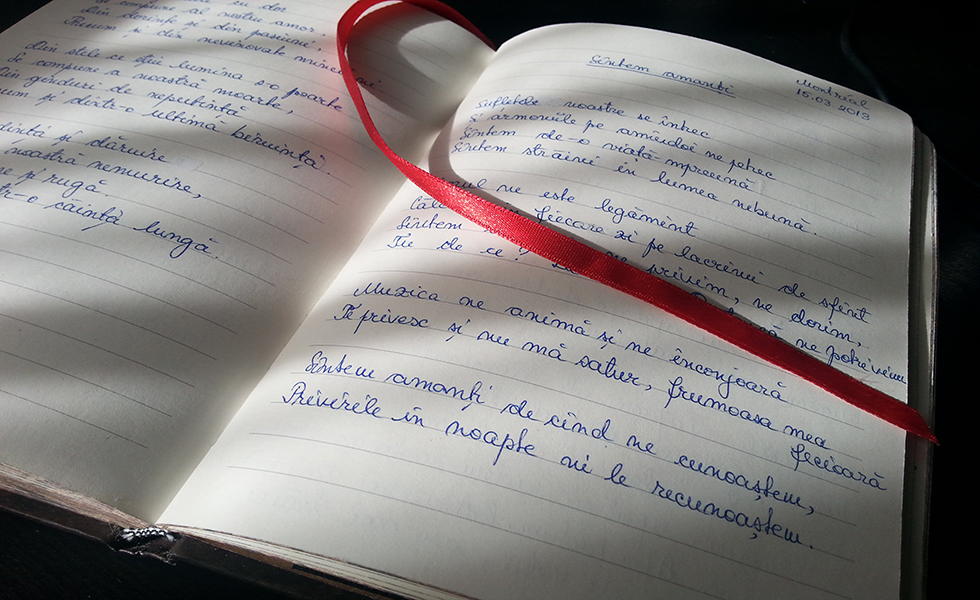 cu dor
compune al nostru amor.
Din dorințe și din pasiune,
Precum și din nevinovate minciuni
Din stele ce dau lumina s-o poarte
Se compune a noastră moarte,
Din gânduri de neputință
cum și dintr-o ultimă beruință.
dință și dăruire
noastră nemurire,
ne și rugă
tr-o căință lungă.
Sîntem amanți
Montréal
15.03 2013
Sufletele noastre se înnec
Și armoniile pe amîndoi ne petrec
Sîntem de-o viată mpreună
Sîntem străini in lumea nebună.
ul ne este legământ
fiecare zi pe lacrimi de sfînt
Sîntem ne privim, ne dorim,
Tu de ce? ne potrivim
Muzica ne animă și ne înconjoară
Te privesc și nu mă satur, frumoasa mea
fecioară
Sîntem amanți de cînd ne cunoaștem,
Privirile în noapte ni le recunoaștem.